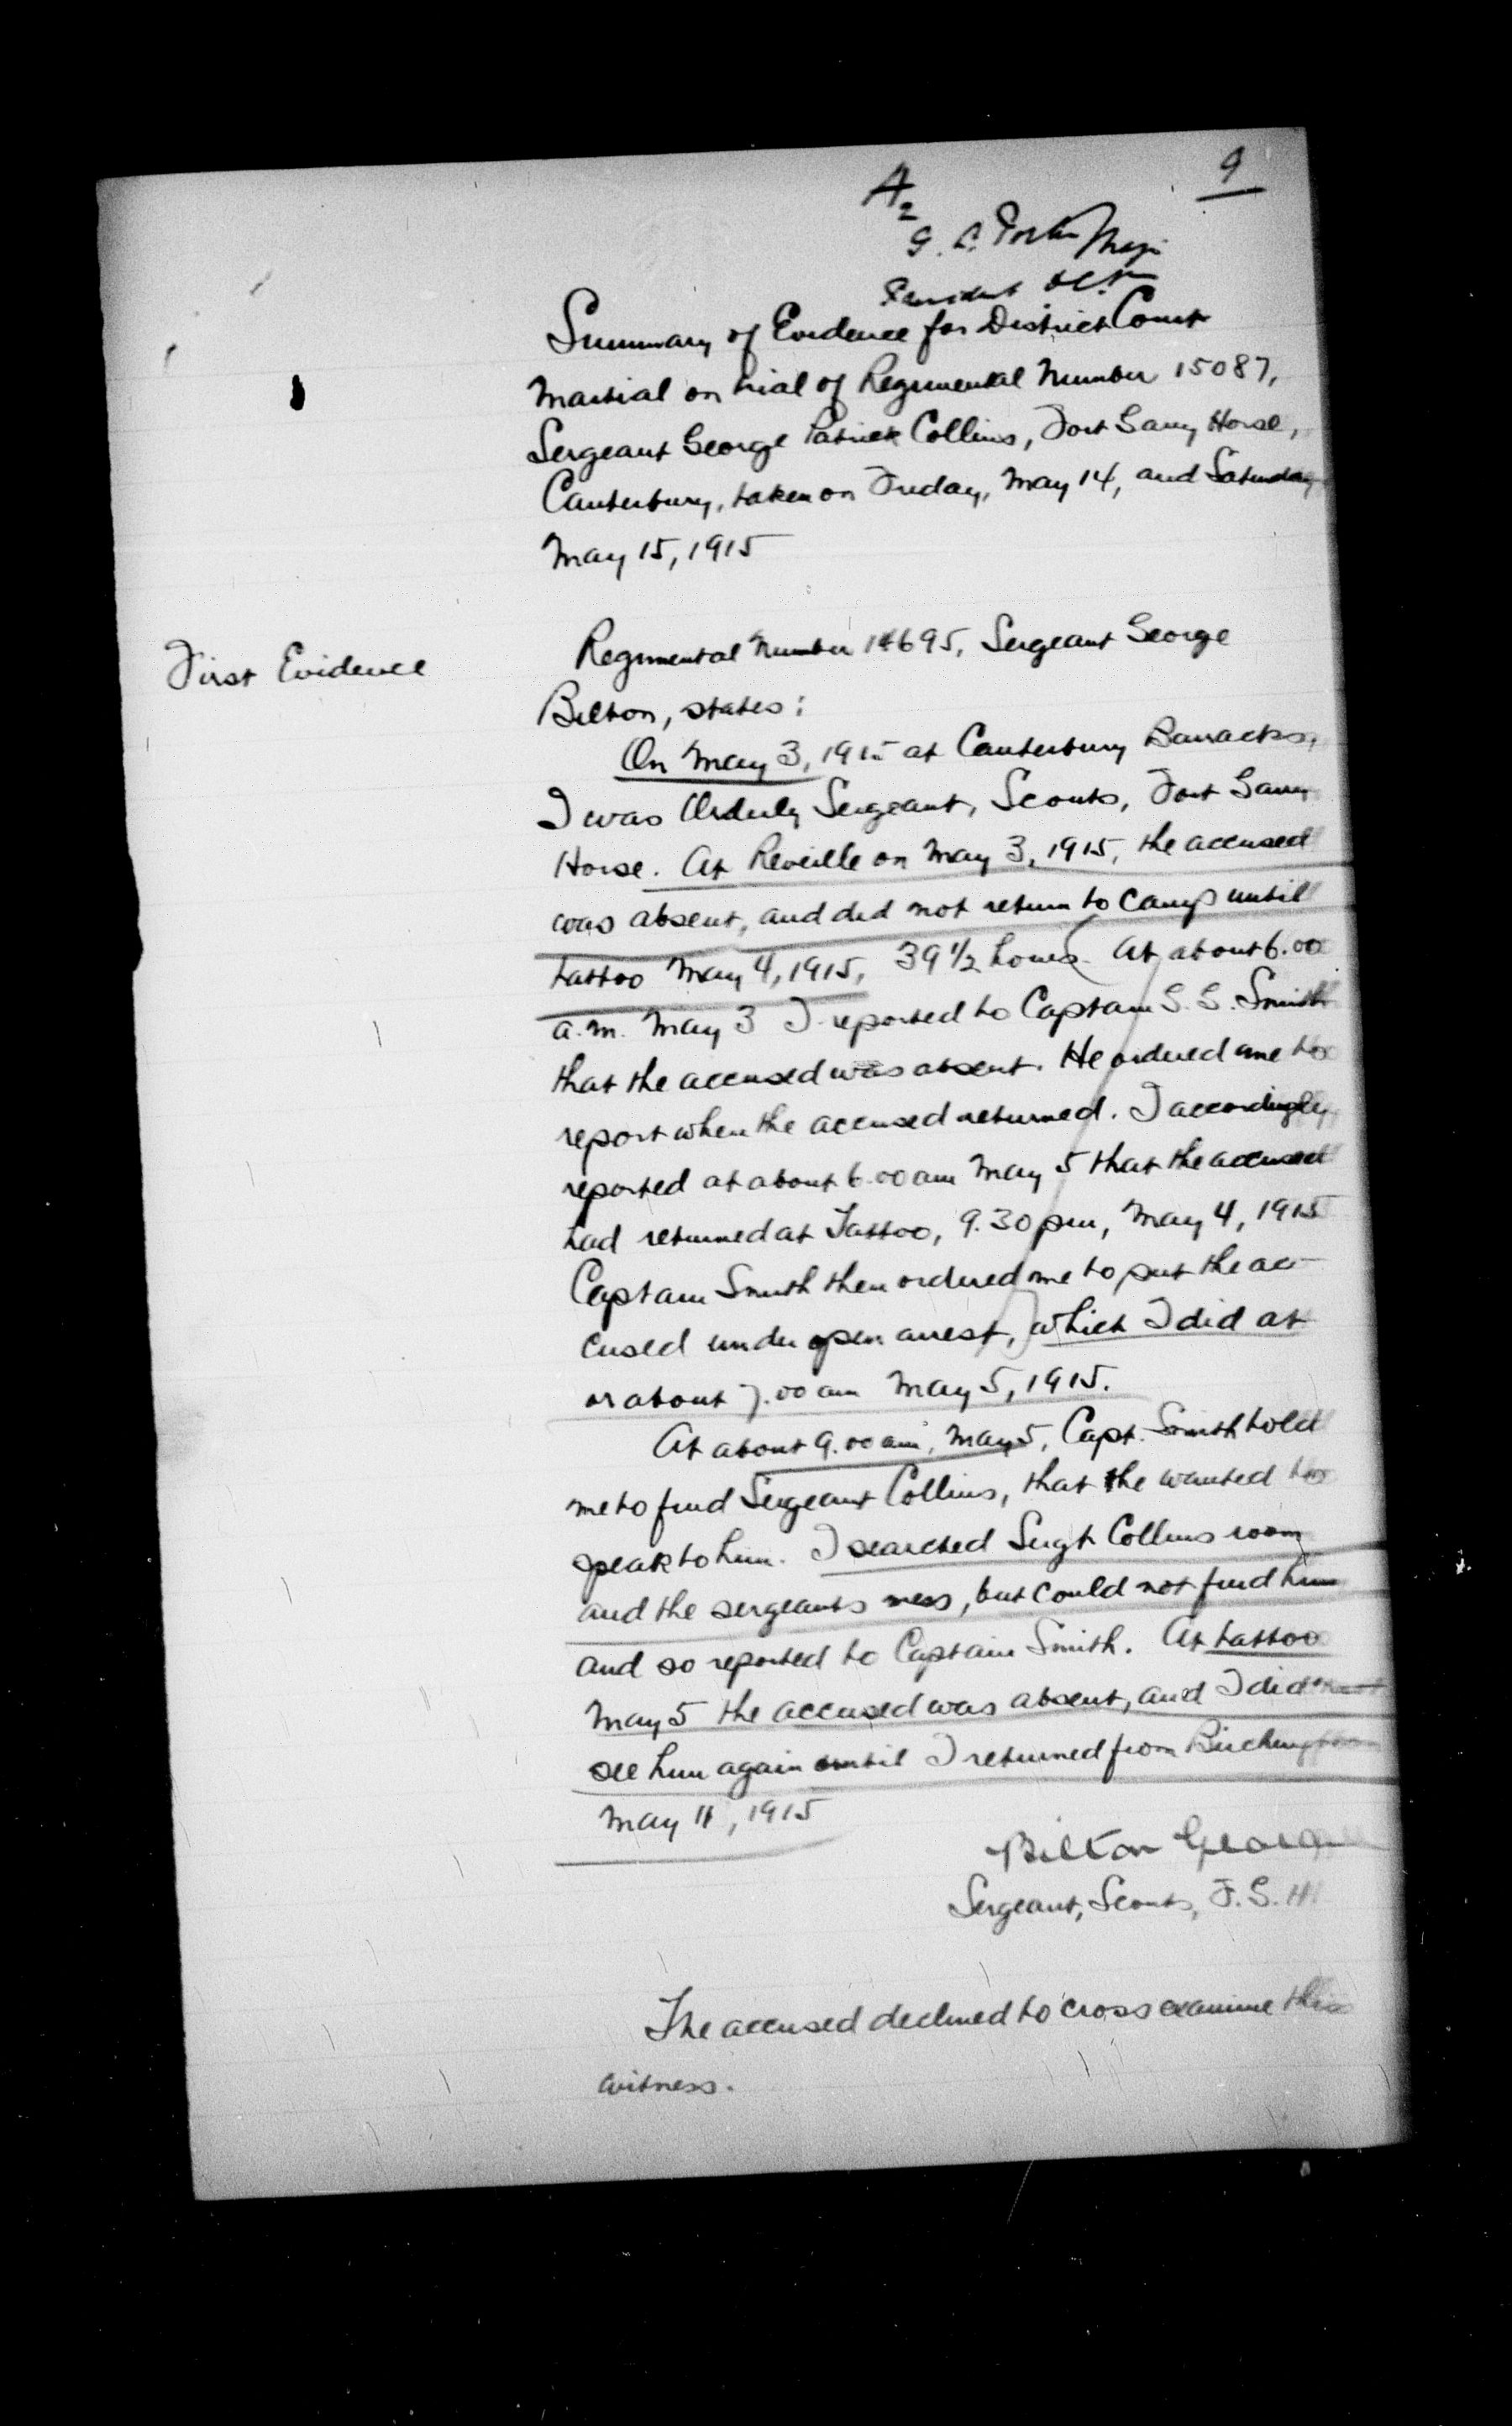 9
A2
G. C.
Maj.
President D.C.M.
Summary of Evidence for District Court
Martial on trial of Regimental Number 15087,
Sergeant George Patrick Collins, Fort Garry Horse,
Canterbury, taken on Friday, May 14, and Saturday
May 15, 1915
First Evidence
Regimental Number 14695, Sergeant George
Bilton, states:
On May 3, 1915 at Canterbury Barracks,
I was Orderly Sergeant, Scouts, Fort Garry
Horse. At Reveille on May 3, 1915, the accused
was absent, and did not return to camp until
tattoo May 4, 1915, 39 1/2 hours. (At about 6.00
a.m. May 3 I reported to Captain G. G. Smith
that the accused was absent. He ordered me to
report when the accused returned. I accordingly
reported at about 6.00 am May 5 that the accused
had returned at Tattoo, 9.30 pm, May 4, 1915
Captain Smith then ordered me to put the ac-
cused under open arrest,) which I did at
or about 7.00 am May 5, 1915.
At about 9.00 am, May 5, Capt. Smith told
me to find Sergeant Collins, that he wanted to
speak to him. I searched Sergt Collins room
and the sergeants mess, but could not find him
and so reported to Captain Smith. At tattoo
May 5 the accused was absent, and I did not
see him again until I returned from Birchington
May 11, 1915
Bilton George
Sergeant, Scouts, F.G.H.
The accused declined to cross examine this
witness.